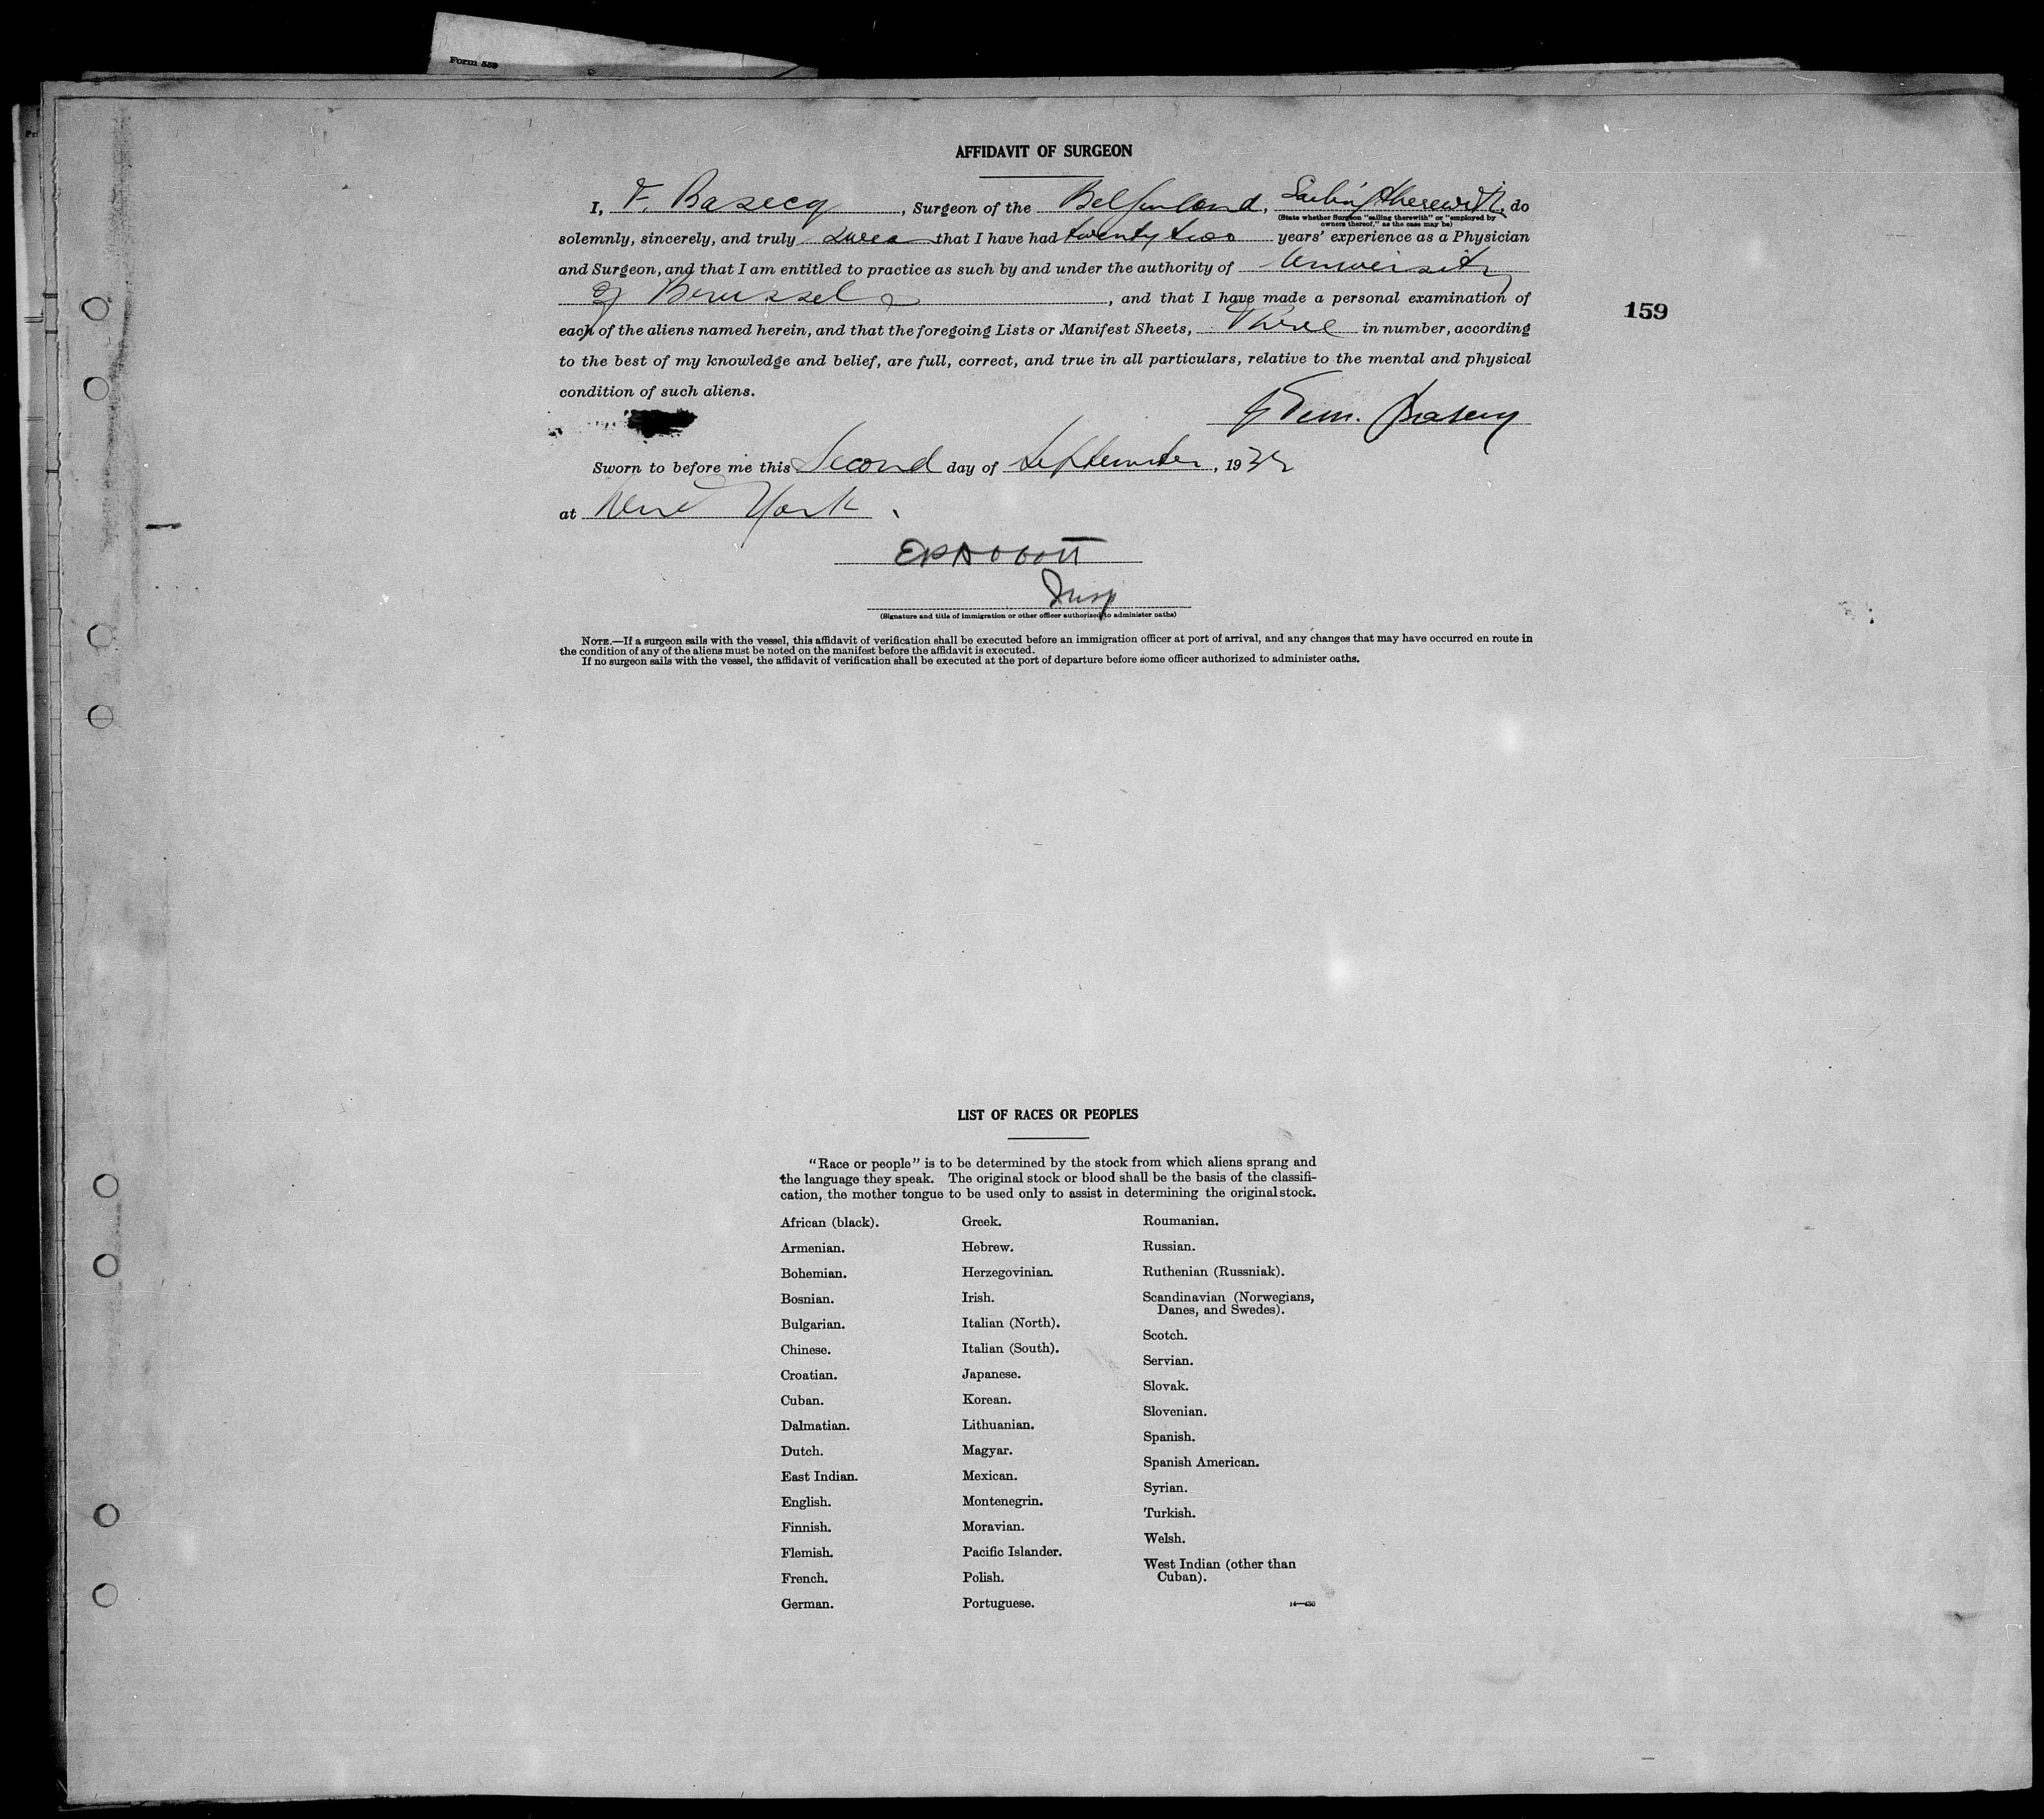 Form 559
AFFIDAVIT OF SURGEON
I, F. Basecq, Surgeon of the Belgenland, Sailing therewith, do
(State whether Surgeon "sailing therewith" or "employed by
owners thereof," as the case may be)
solemnly, sincerely, and truly swear that I have had twenty two years' experience as a Physician
and Surgeon, and that I am entitled to practice as such by and under the authority of University
of Brussels, and that I have made a personal examination of
159
each of the aliens named herein, and that the foregoing Lists or Manifest Sheets, Three in number, according
to the best of my knowledge and belief, are full, correct, and true in all particulars, relative to the mental and physical
condition of such aliens.
Basecq
Sworn to before me this Second day of September, 193
at New York
Insp
(Signature and title of immigration or other officer authorized to administer oaths)
NOTE.—If a surgeon sails with the vessel, this affidavit of verification shall be executed before an immigration officer at port of arrival, and any changes that may have occurred en route in
the condition of any of the aliens must be noted on the manifest before the affidavit is executed.
If no surgeon sails with the vessel, the affidavit of verification shall be executed at the port of departure before some officer authorized to administer oaths.
LIST OF RACES OR PEOPLES
"Race or people" is to be determined by the stock from which aliens sprang and
the language they speak. The original stock or blood shall be the basis of the classifi-
cation, the mother tongue to be used only to assist in determining the original stock.
African (black).
Armenian.
Bohemian.
Bosnian.
Bulgarian.
Chinese.
Croatian.
Cuban.
Dalmatian.
Dutch.
East Indian.
English.
Finnish.
Flemish.
French.
German.
Greek.
Hebrew.
Herzegovinian.
Irish.
Italian (North).
Italian (South).
Japanese.
Korean.
Lithuanian.
Magyar.
Mexican.
Montenegrin.
Moravian.
Pacific Islander.
Polish.
Portuguese.
Roumanian.
Russian.
Ruthenian (Russniak).
Scandinavian (Norwegians,
Danes, and Swedes).
Scotch.
Servian.
Slovak.
Slovenian.
Spanish.
Spanish American.
Syrian.
Turkish.
Welsh.
West Indian (other than
Cuban).
14—430